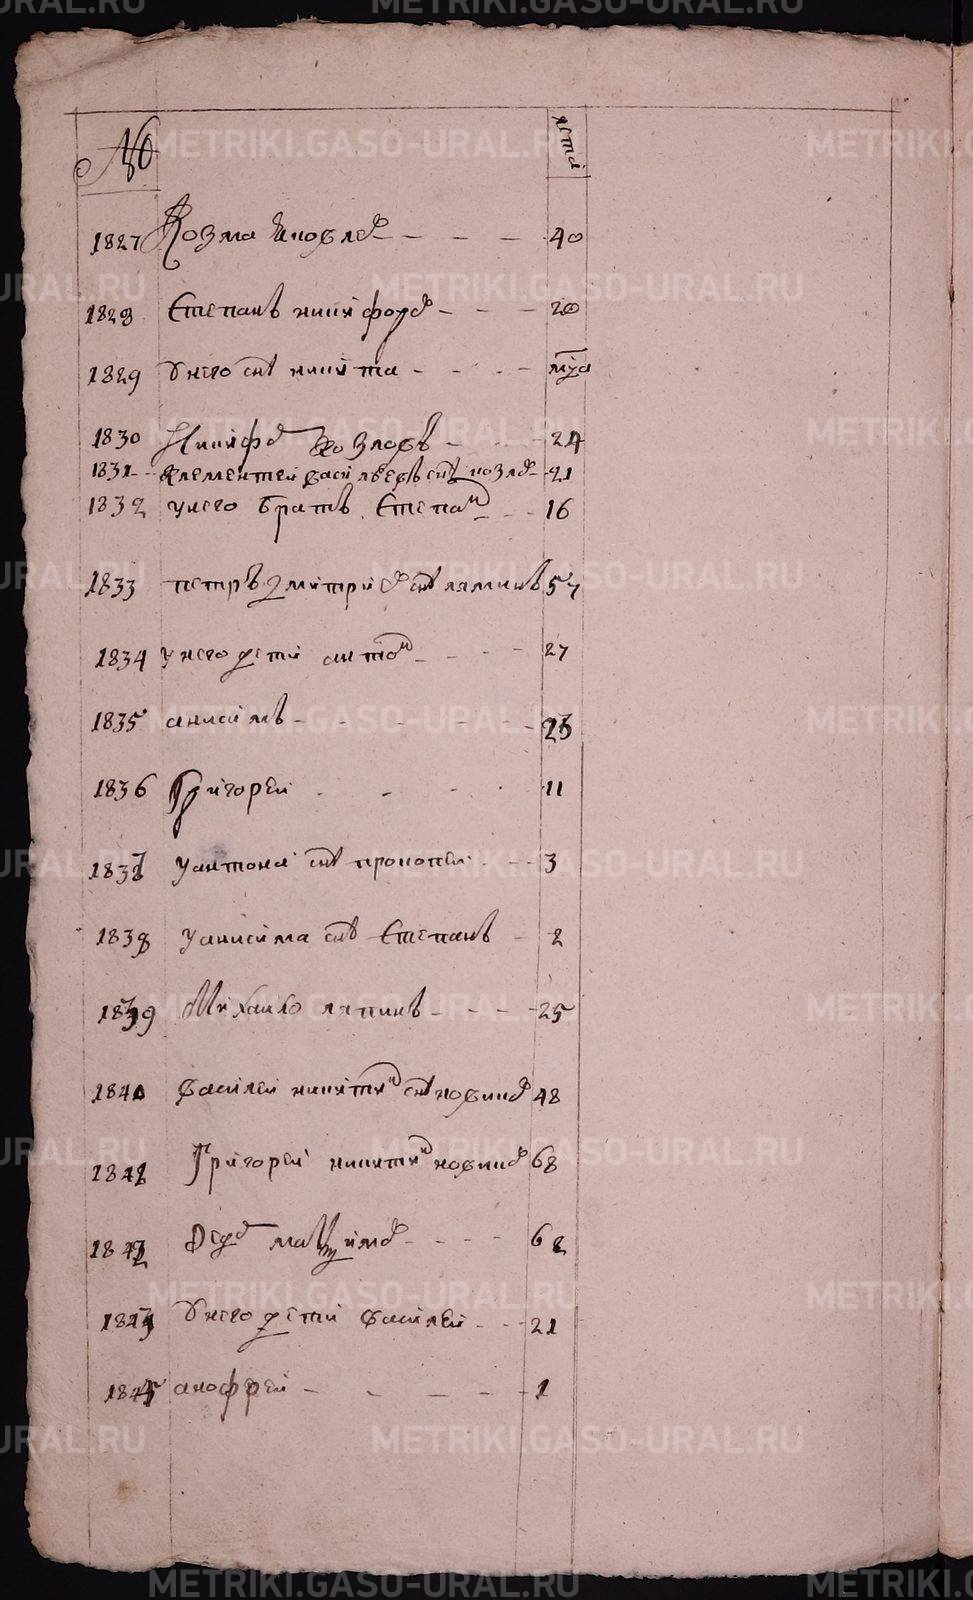 METRIKI.GASO-URAL.RU
№ лета
1827 Козма Яковлев 40
1828 Степанъ никифоров 20
1829 Унего снъ никита
1830 Никифор Козловъ 24
1831 Клементей васильевъ снъ козлов 21
1832 унего братъ Степан 16
1833 петръ дмитриев снъ ляминъ 57
1834 унего дети антон 27
1835 анисимъ 23
1836 Григореи 11
1837 Уантона снъ прокопеи 3
1838 Уанисима снъ Степанъ 2
1839 Михаило лапинъ 25
1840 Василеи никитин снъ новиков 48
1841 Григореи никитин новиков 68
1842 Федор 62
1843 Унего дети василеи 21
184 анофреи 1